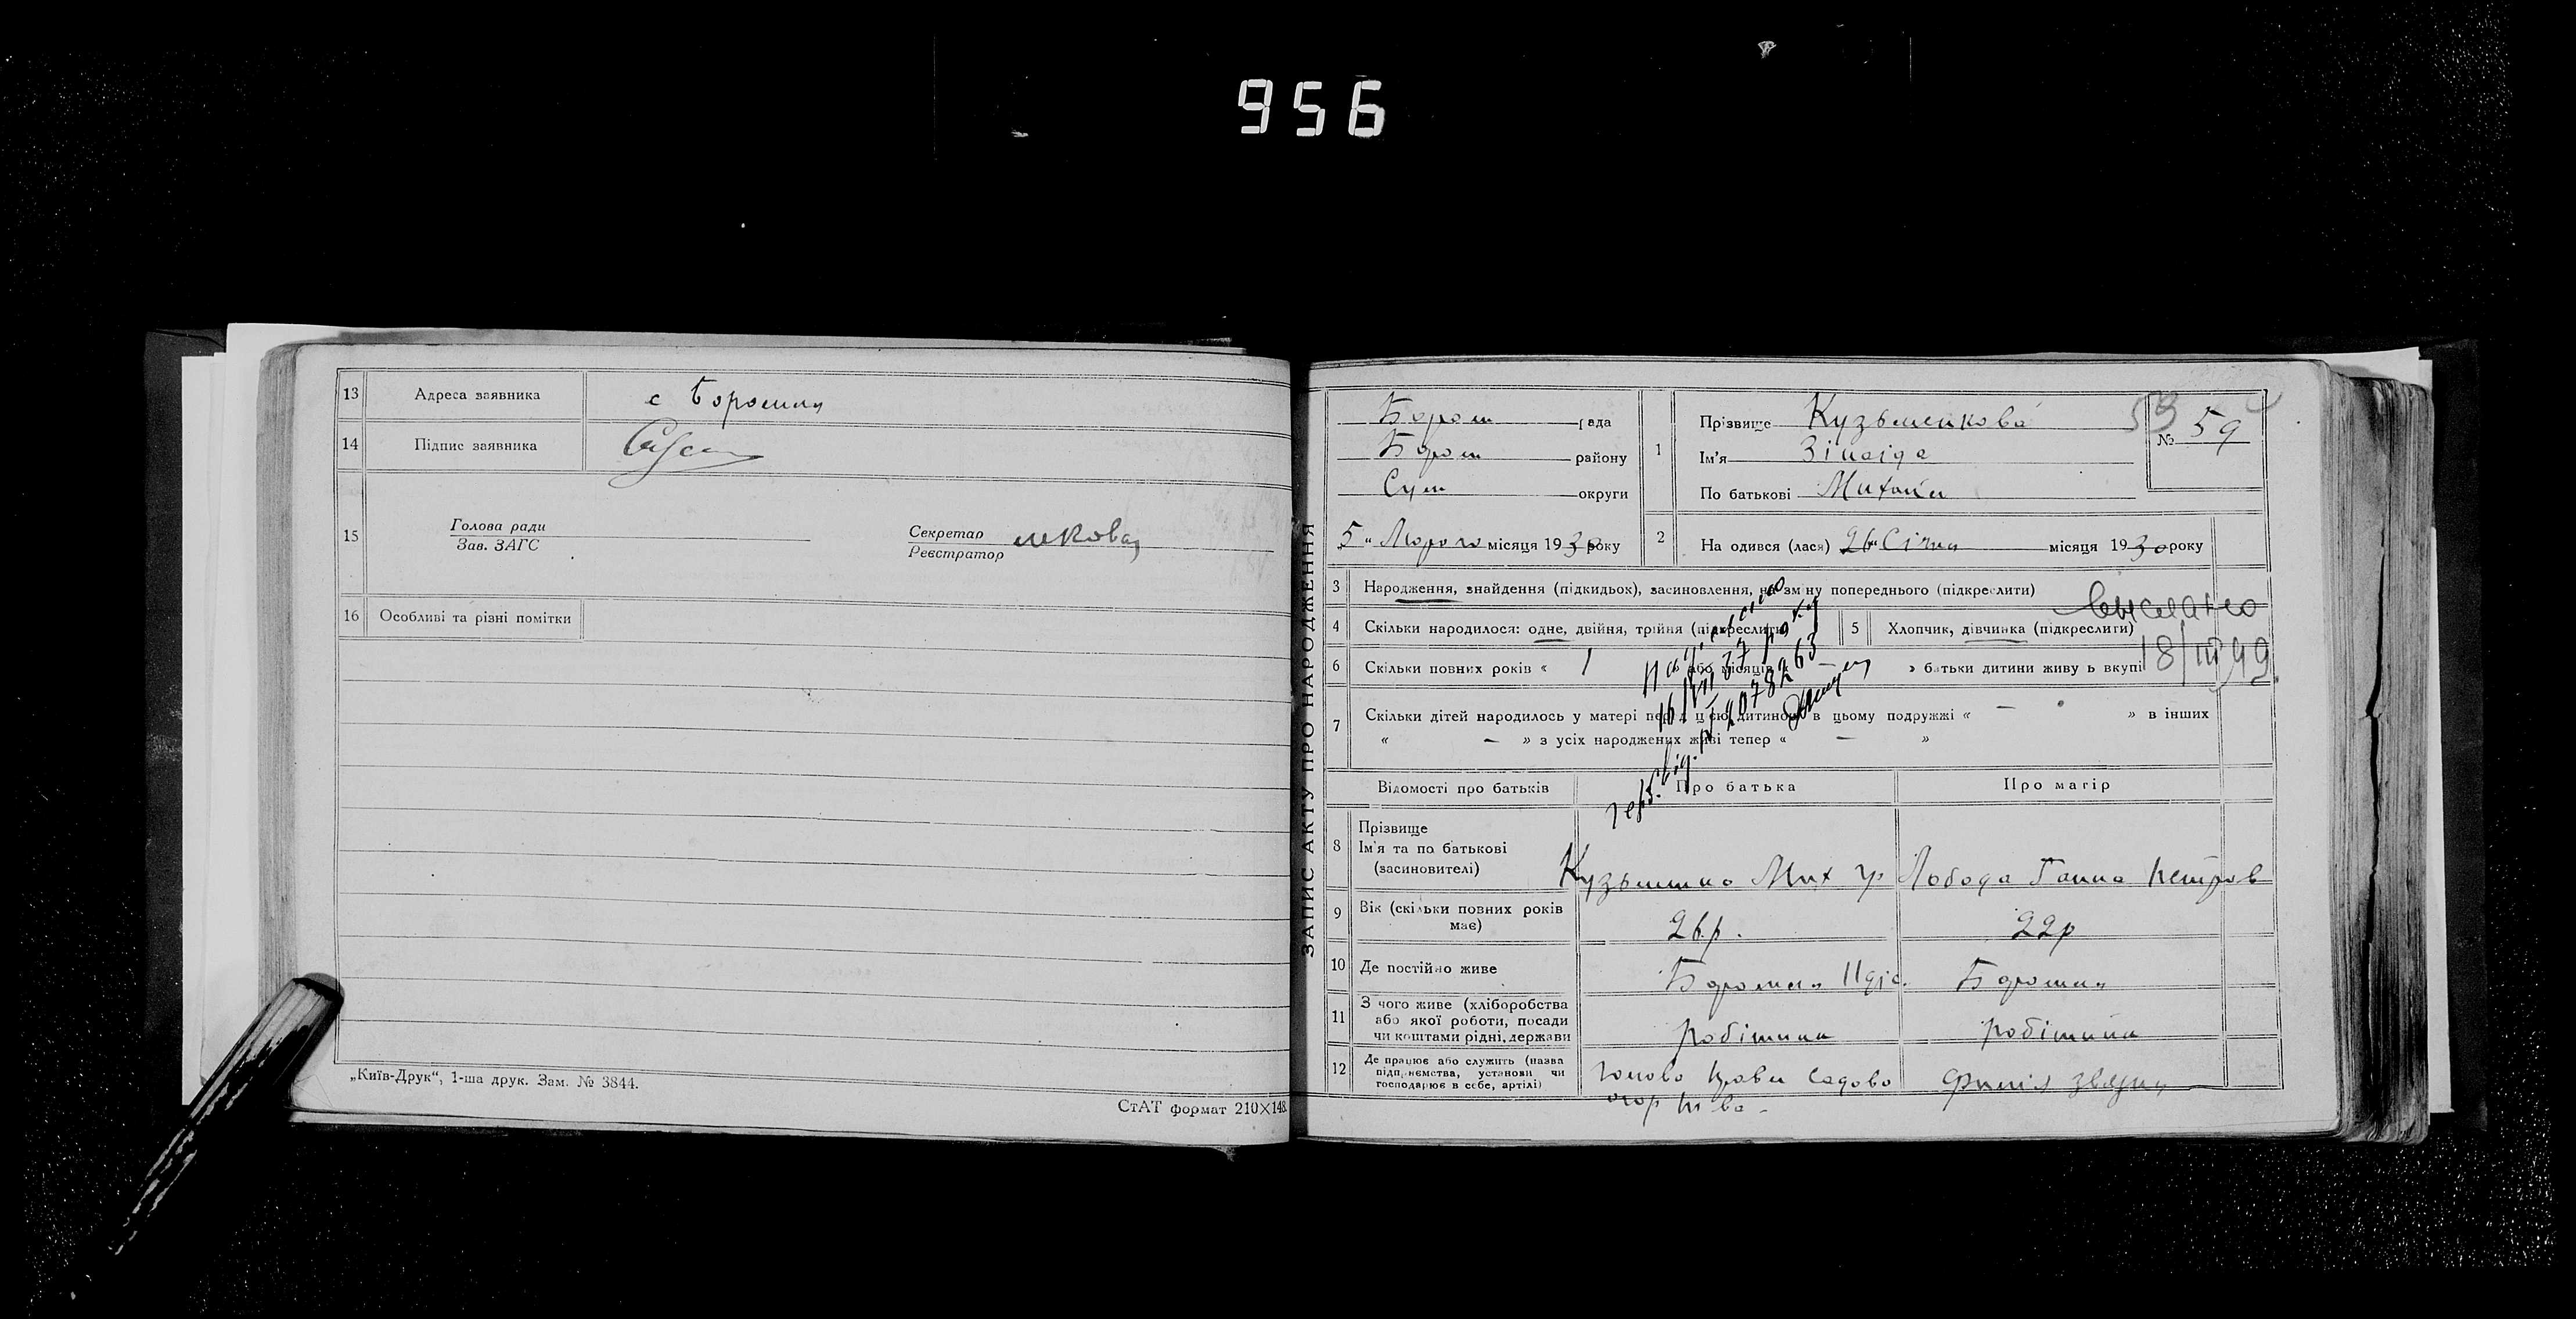 956
13 Адреса заявника с Боромля
14 Підпис заявника
15 Голова ради
Зав. ЗАГС
Секретар
Реєстратор
16 Особливі та різні помітки
„Київ-Друк“, 1-ша друк. Зам. № 3844.
СтАТ формат 210×148.
ЗАПИС АКТУ ПРО НАРОДЖЕННЯ
Бором рада
Бором району
Сум округи
5 „ Лютого місяця 1930 року
1 Прізвище Кузьменкова
Ім'я Зінаіда
По батькові Михайл
№ 59
59
2 На одився (лася) 26 „ Січня місяця 1930 року
3 Народження, знайдення (підкидьох), засиновлення, на зміну попереднього (підкреслити)
4 Скільки народилося: одне, двійня, трійня (підкреслити)
5 Хлопчик, дівчинка (підкреслити)
Выслано
18/III 49
6 Скільки повних років « 1 або місяців — » батьки дитини живу ь вкупі
7 Скільки дітей народилось у матері перед цією дитиною в цьому подружжі « — » в інших
« — » з усіх народжених живі тепер « — »
16/VII 37 року
Відомості про батьків Про батька Про матір
8 Прізвище
Ім'я та по батькові
(засиновителі)
Кузьменко Мих Гр Лобода Ганна Петров
9 Вік (скільки повних років
має)
26р. 22р
10 Де постійно живе Боромля Боромля
11 З чого живе (хліборобства
або якої роботи, посади
чи коштами рідні, держави
робітник робітниця
12 Де працює або служить (назва
підприємства, установи чи
господарює в себе, артілі)
Голова Прави Садово
огор